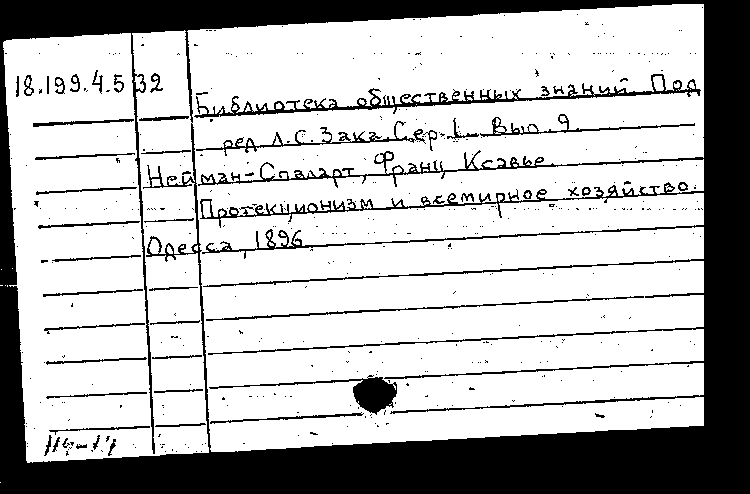 18.199.4.5 32
Библиотека общественных знаний. Под
ред. Л.С. Зака. Сер. I. Вып. 9.
Нейман-Спаларт, Франц Ксавье.
Протекционизм и всемирное хозяйство.
Одесса, 1896.